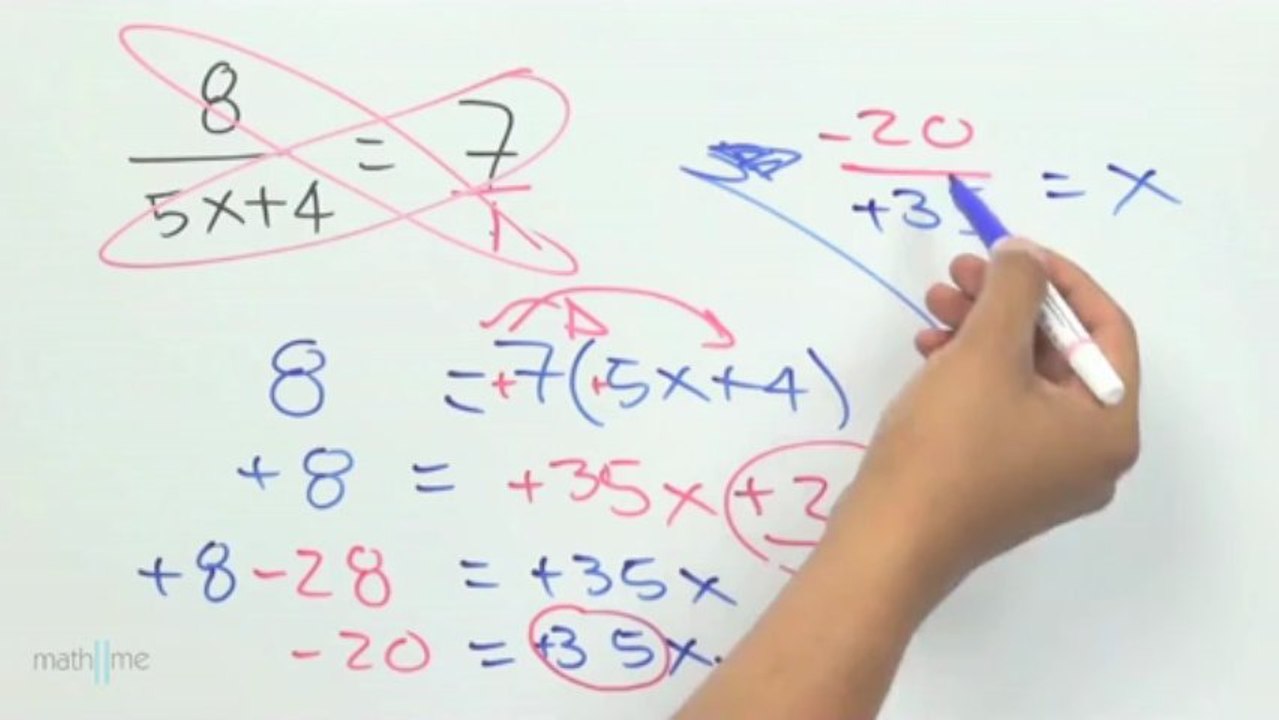 8
5x+4
= 7
1
-20
+35
= x
8 = +7(+5x+4)
+8 = +35x +2
+8-28 = +35x
-20 = +35x
math||me